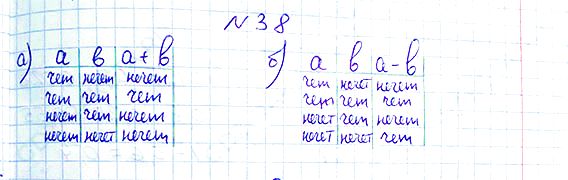 N 38
а) а в а+в
чет нечет нечет
чет чет чет
нечет чет нечет
нечет нечет нечет
б) а в а-в
чет нечет нечет
чет чет чет
нечет чет нечет
нечет нечет чет